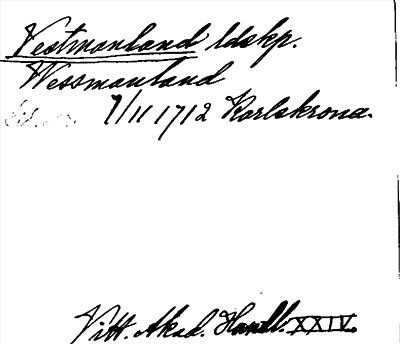 Vestmanland ldskp.
Wessmanland
7/11 1712 Karlskrona.
Vitt. Akad. Handl. XXIV.